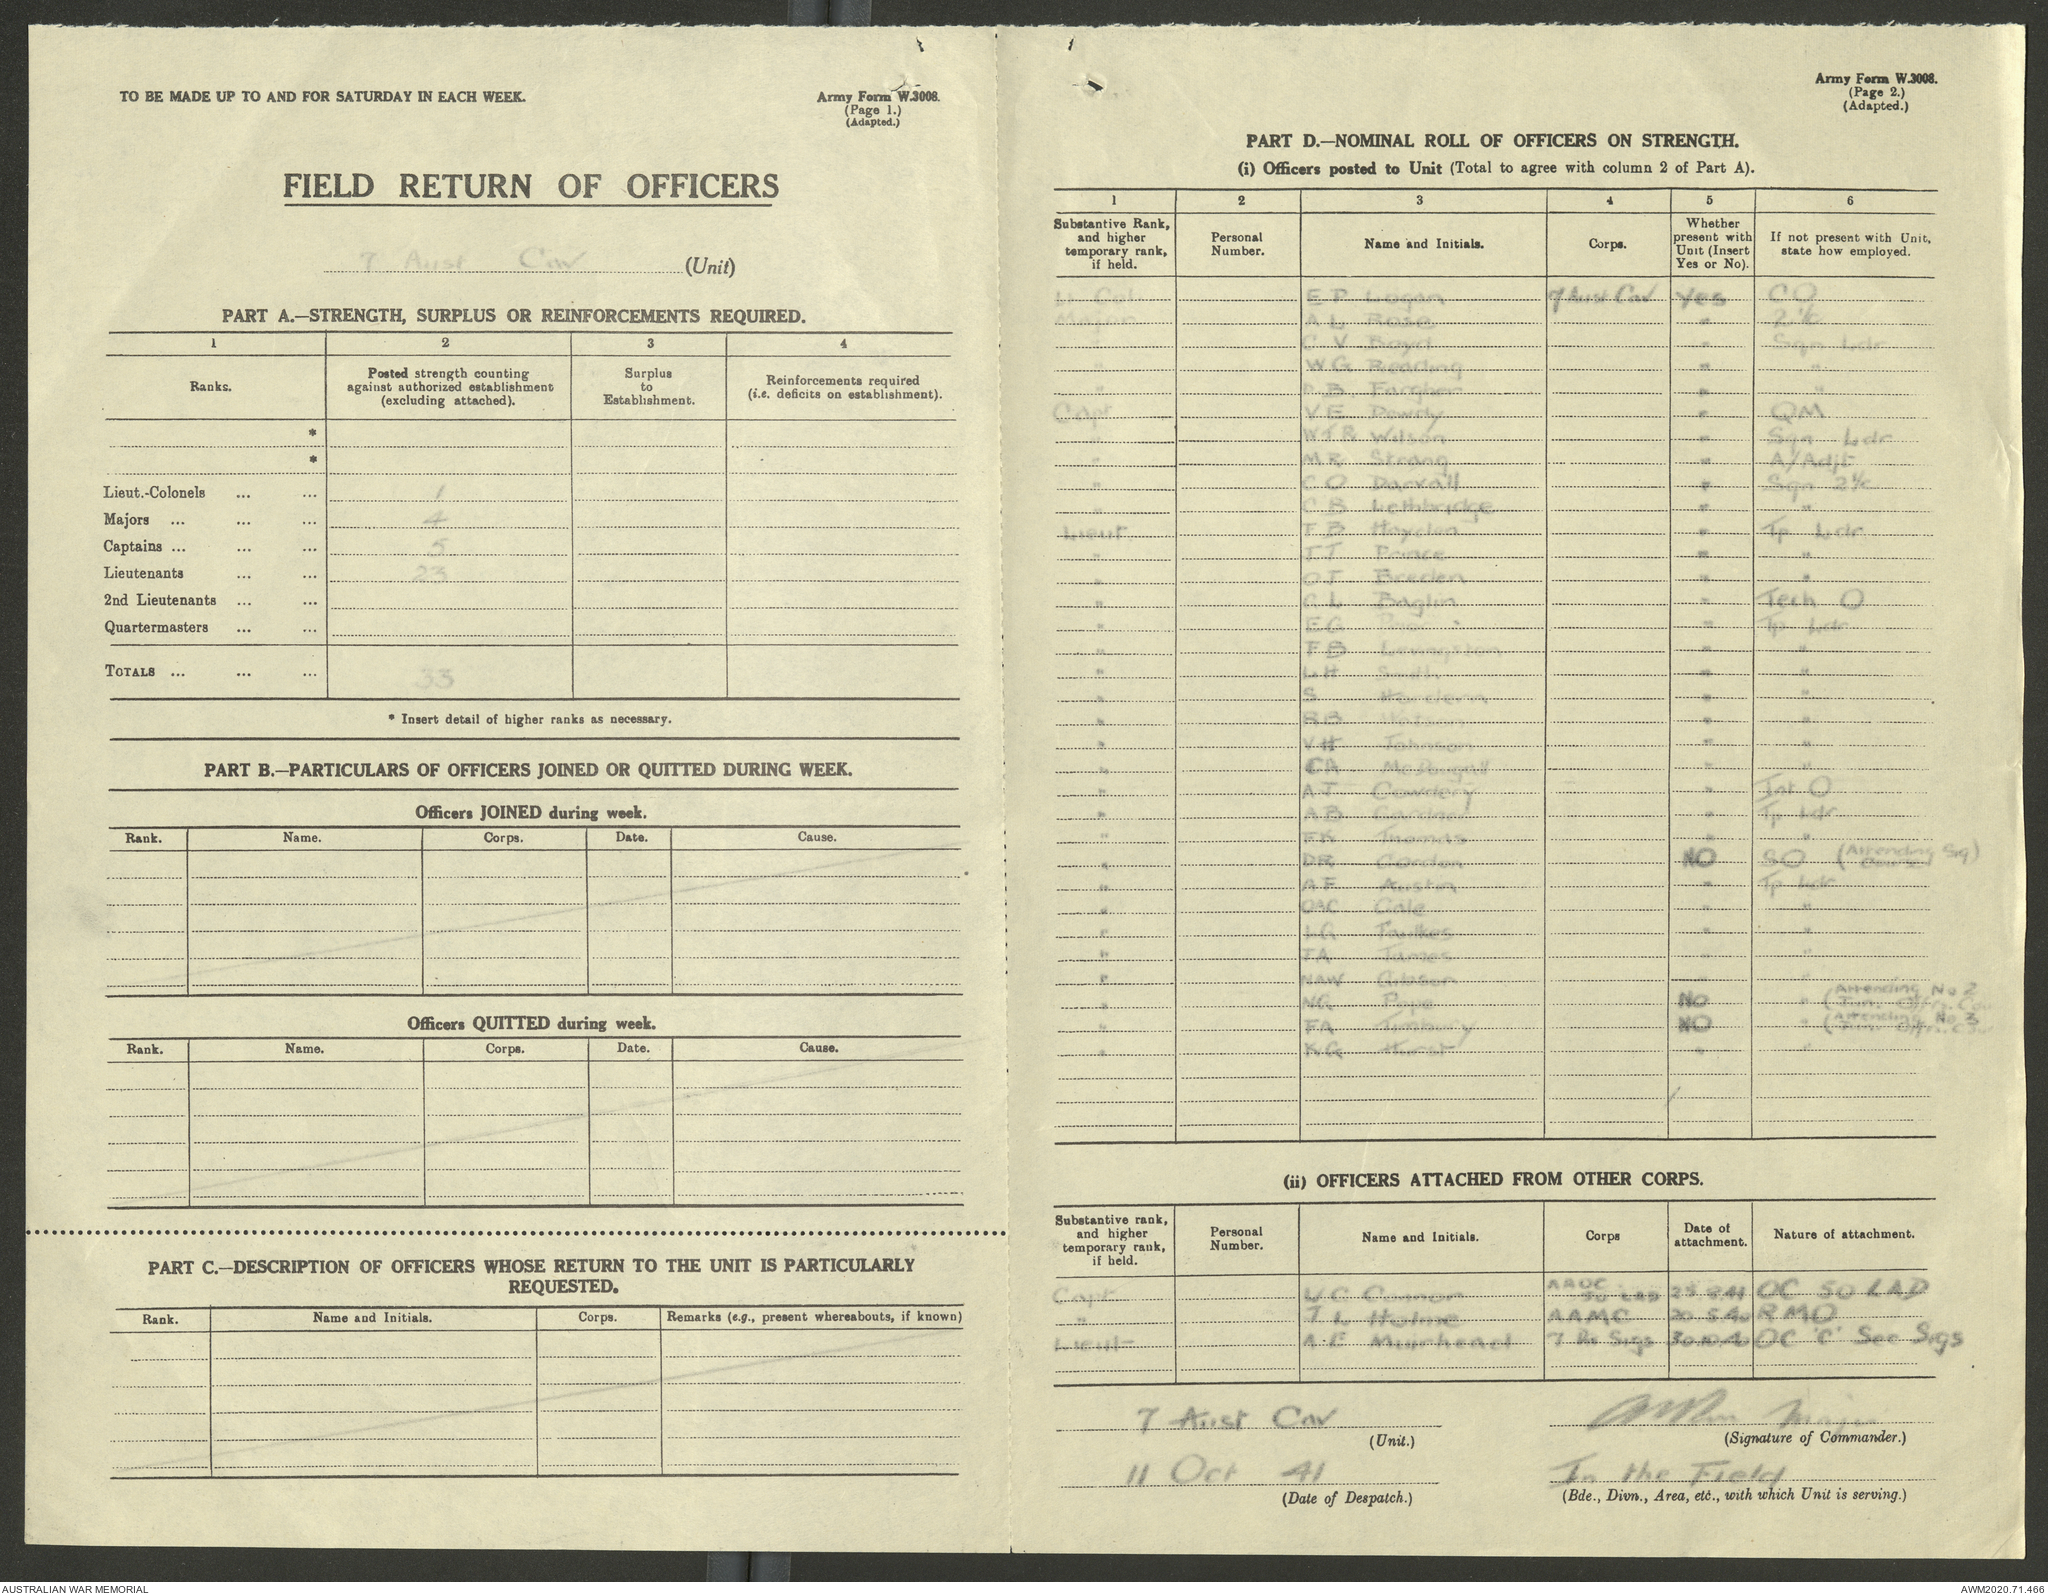 TO BE MADE UP TO AND FOR SATURDAY IN EACH WEEK.
Army Form W.3008.
(Page 1.)
(Adapted.)
FIELD RETURN OF OFFICERS
7 Aust Cav (Unit)
PART A.—STRENGTH, SURPLUS OR REINFORCEMENTS REQUIRED.
1 2 3 4
Ranks. Posted strength counting against authorized establishment (excluding attached). Surplus to Establishment. Reinforcements required (i.e. deficits on establishment).
*
*
Lieut.-Colonels ... ... 1
Majors ... ... ... 4
Captains ... ... ... 5
Lieutenants ... ... 23
2nd Lieutenants ... ...
Quartermasters ... ...
TOTALS ... ... ... 33
* Insert detail of higher ranks as necessary.
PART B.—PARTICULARS OF OFFICERS JOINED OR QUITTED DURING WEEK.
Officers JOINED during week.
Rank. Name. Corps. Date. Cause.
Officers QUITTED during week.
Rank. Name. Corps. Date. Cause.
PART C.—DESCRIPTION OF OFFICERS WHOSE RETURN TO THE UNIT IS PARTICULARLY
REQUESTED.
Rank. Name and Initials. Corps. Remarks (e.g., present whereabouts, if known)
Army Form W.3008.
(Page 2.)
(Adapted.)
PART D.—NOMINAL ROLL OF OFFICERS ON STRENGTH.
(i) Officers posted to Unit (Total to agree with column 2 of Part A).
1 2 3 4 5 6
Substantive Rank, and higher temporary rank, if held. Personal Number. Name and Initials. Corps. Whether present with Unit (Insert Yes or No). If not present with Unit, state how employed.
Lt Col E P Logan 7 Aust Cav Yes CO
Major A L Rose " 2 i/c
" C V Boyd " Sqn Ldr
" W G Reading " "
" D.B. Fargher " "
Capt V E Dowdy " QM
" W J R Wilson " Sqn Ldr
" M R Strang " A/Adjt
" C O Darvall " Sqn 2 i/c
" C B Lethbridge " "
Lieut F B Hayden " Tp Ldr
" J J Prince " "
" O J Breden " "
" C L Baglin " Tech O
" E G " Tp Ldr
" F B Levingston " "
" L H Smith " "
" S Hordern " "
" R B Watson " "
" V H Johnson " "
" C A McDougall " "
" A J Cowdery " Int O
" A B Gardner " Tp Ldr
" F K Thomas " "
" D R Gordon NO SO (Attending Sig Course)
" A F Austin " Tp Ldr
" Cole " "
" L G Foulkes " "
" J A James " "
" N A W Gibson " "
" N G Pope NO " (Attending No 2 Jun. Offrs. Cou
" F A Timbury NO " (Attending No 3 Jun. Offrs. Cou
" K G Hurst " "
(ii) OFFICERS ATTACHED FROM OTHER CORPS.
Substantive rank, and higher temporary rank, if held. Personal Number. Name and Initials. Corps Date of attachment. Nature of attachment.
Capt C Connor AAOC 50 LAD OC 50 LAD
" J L Hulme AAMC 20.5.40 RMO
Lieut A E Muirhead 7 Div Sigs 30.10.40 OC 'C' Sec Sigs
7 Aust Cav Major
(Unit.) (Signature of Commander.)
11 Oct 41 In the Field
(Date of Despatch.) (Bde., Divn., Area, etc., with which Unit is serving.)
AUSTRALIAN WAR MEMORIAL
AWM2020.71.466